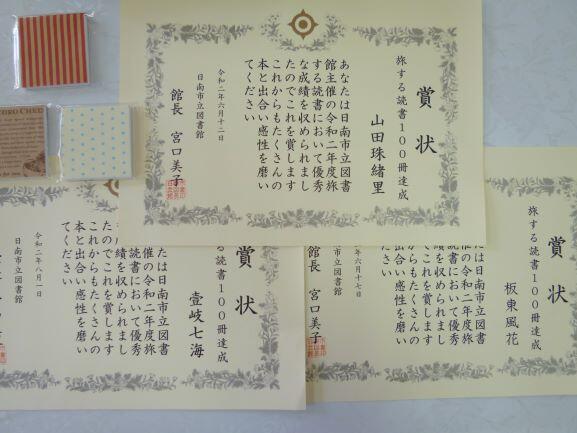 賞状
旅する読書100冊達成
山田珠緒里
あなたは日南市立図書
館主催の令和二年度旅
する読書において優秀
な成績を収められまし
たのでこれを賞します
これからもたくさんの
本と出合い感性を磨い
てください
令和二年六月十二日
日南市立図書館
館長 宮口美子
賞状
旅する読書100冊達成
板東風花
たは日南市立図書
催の令和二年度旅
読書において優秀
績を収められまし
でこれを賞します
からもたくさんの
出合い感性を磨い
ださい
年六月十七日
市立図書館
館長 宮口美子
賞状
る読書100冊達成
壹岐七海
たは日南市立図書
催の令和二年度旅
る読書において優秀
成績を収められまし
のでこれを賞します
これからもたくさんの
本と出合い感性を磨い
てください
令和二年八月一日
日南市立図書館